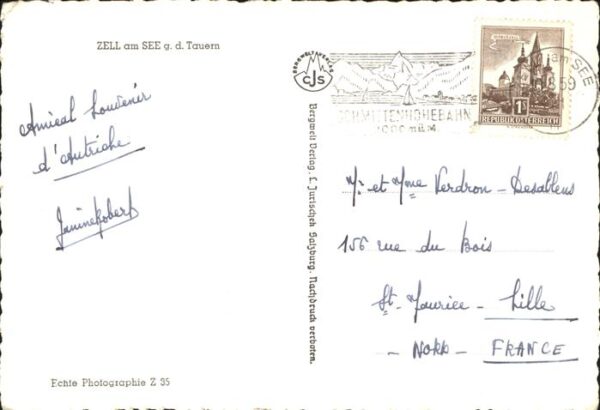 ZELL am SEE g. d. Tauern
Amical Souvenir
d'Autriche
Janinerobert
Echte Photographie Z 35
BERGWELTVERLAG
CJS
Bergwelt Verlag, C. Jurischek Salzburg. Nachdruck verboten.
SCHMITTENHÖHEBAHN
am SEE
8.59
1S
REPUBLIK ÖSTERREICH
Mr et Mme Verdron - Desallens
156 rue du Bois
St-Maurice - Lille
- Nord - FRANCE